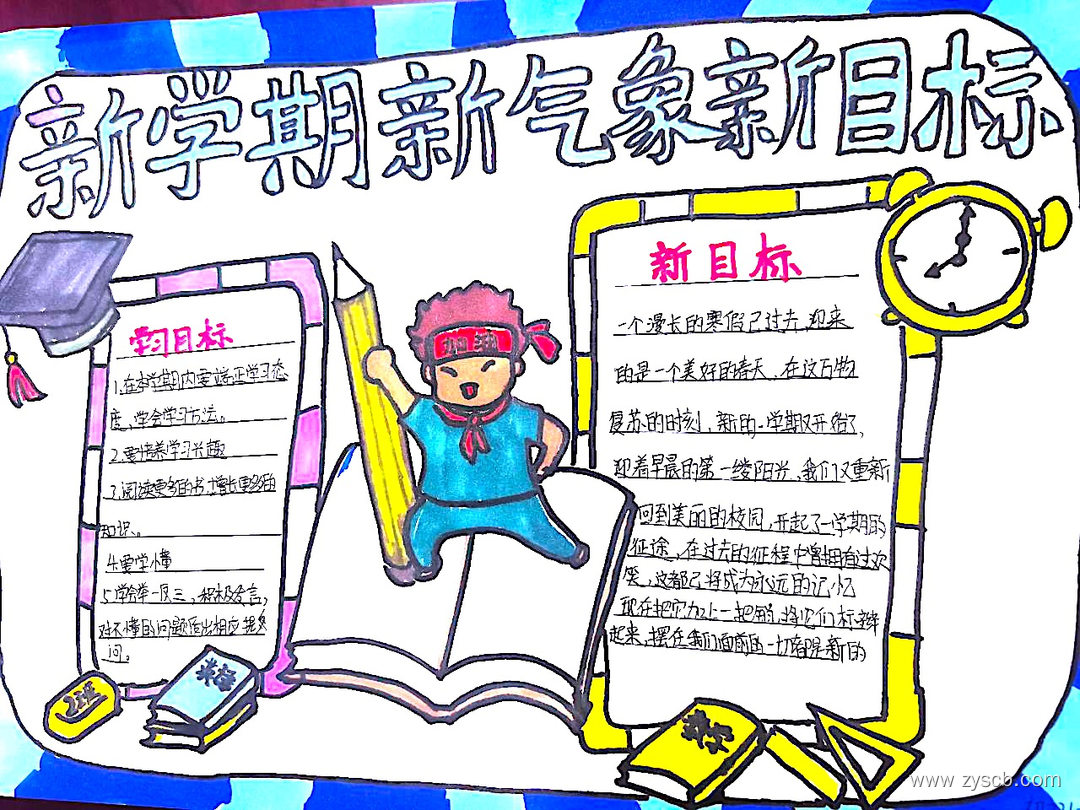 新学期新气象新目标
学习目标
1.在本学期内要端正学习态
度,学会学习方法。
2.要培养学习兴趣
3.阅读更多的书,增长更多的
知识。
4.要学懂
5.学会举一反三,积极发言,
对不懂的问题
问。
2班
英语
加油
新目标
一个漫长的寒假已过去,迎来
的是一个美好的春天,在这万物
复苏的时刻,新的一学期又开始了,
迎着早晨的第一缕阳光,我们又重新
回到美丽的校园,开起了一学期的
征途,在过去的征程中曾拥有过欢
笑,这都已将成为永远的记忆
现在把它加上一把锁,将它们标
起来,摆在我们面前的一切都是新的
www.zyscb.com